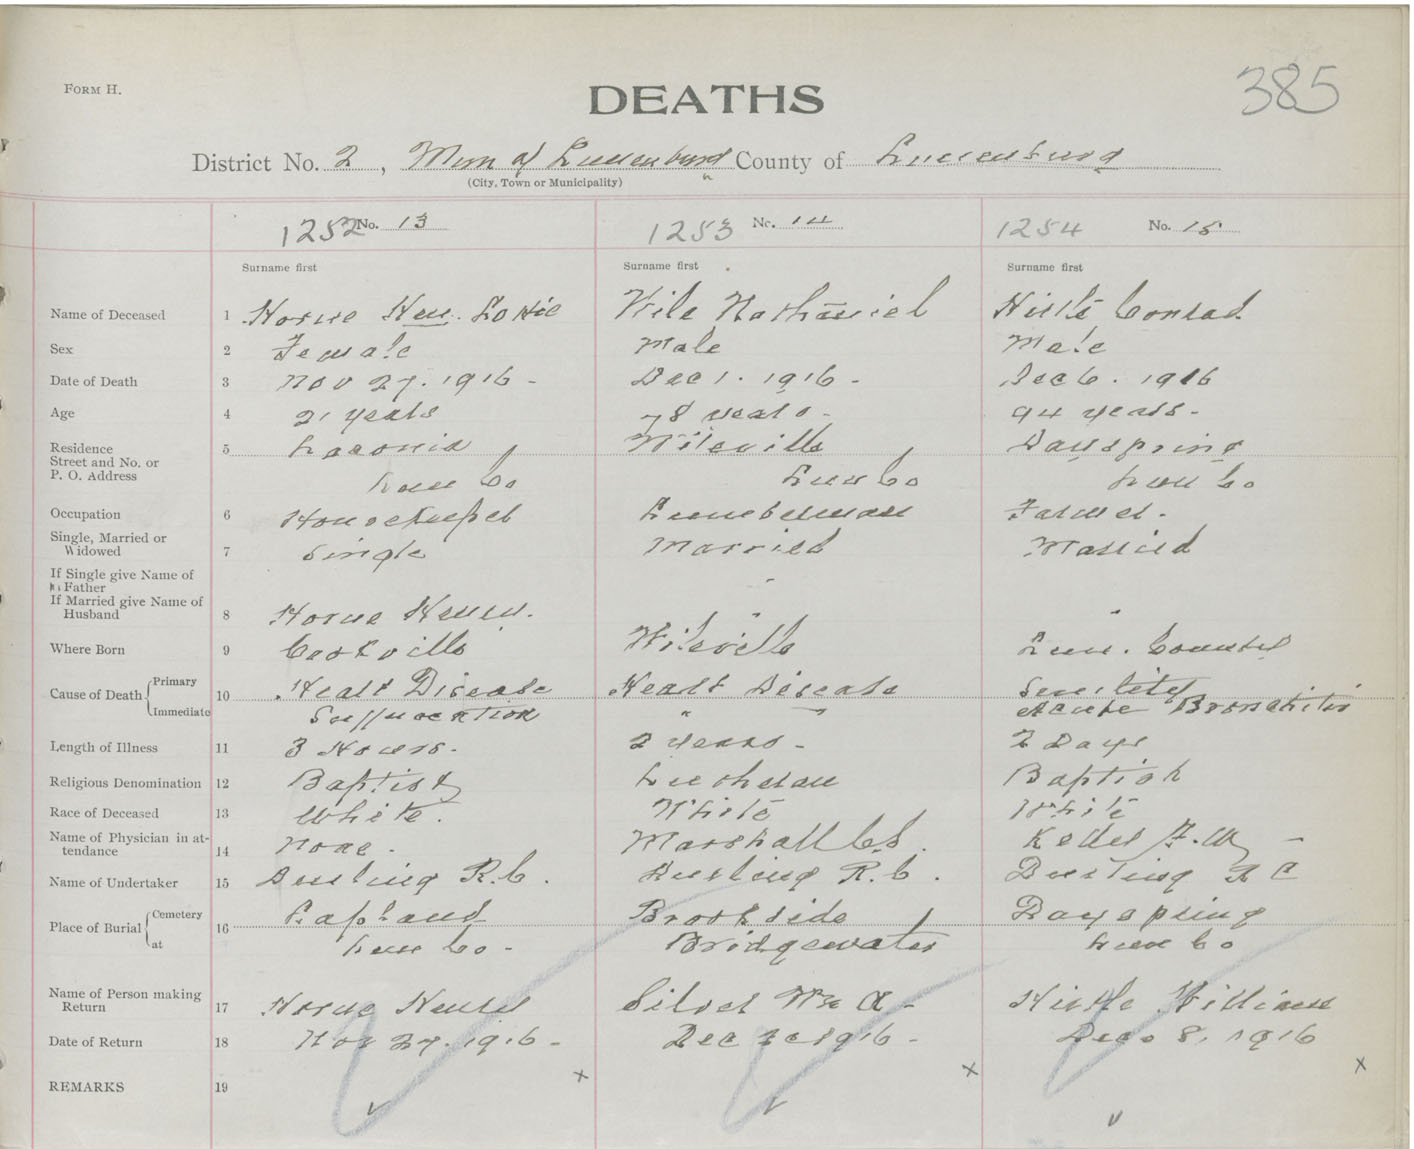 FORM H.
385
DEATHS
District No. 2, Mun of Lunenburg County of Lunenburg
(City, Town or Municipality)
1252 No. 13 1253 No. 14 1254 No. 15
Surname first Surname first Surname first
Name of Deceased 1 Horne Lottie Wile Nathaniel Hirtle Conrad
Sex 2 Female Male Male
Date of Death 3 Nov 27. 1916 - Dec 1. 1916 - Dec 6. 1916
Age 4 21 years 78 years - 94 years -
Residence 5 Laconia Wileville Dayspring
Street and No. or
P. O. Address Lun Co Lun Co Lun Co
Occupation 6 Housekeeper Lumberman Farmer -
Single, Married or
Widowed 7 Single Married Married
If Single give Name of
Father
If Married give Name of
Husband 8 Horne Henry. " "
Where Born 9 Wileville Lun. County
Cause of Death Primary 10 Heart Disease Heart Disease Senility
Immediate Suffocation " " Acute Bronchitis
Length of Illness 11 3 Hours - 2 years - 2 Days
Religious Denomination 12 Baptist Lutheran Baptist
Race of Deceased 13 White. White White
Name of Physician in at-
tendance 14 None - Marshall C.S.
Name of Undertaker 15 R. C. R. C. R C
Place of Burial Cemetery 16 Lapland Brookside Dayspring
at Lun Co - Bridgewater Lun Co
Name of Person making
Return 17 Horne Henry Silver Wm A - Hirtle William
Date of Return 18 Nov 27. 1916 - Dec 1916 - Dec 8, 1916
REMARKS 19 x x x